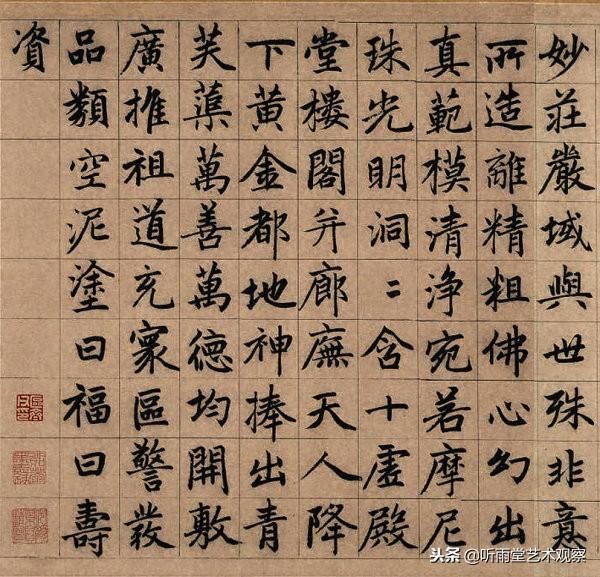 妙莊嚴域與世殊非意
所造離精粗佛心幻出
真範模清淨宛若摩尼
珠光明洞〻含十虛殿
堂樓閣并廊廡天人降
下黃金都地神捧出青
芙蕖萬善萬德均開敷
廣推祖道充寰區警發
品類空泥塗曰福曰壽
資
头条 @听雨堂艺术观察